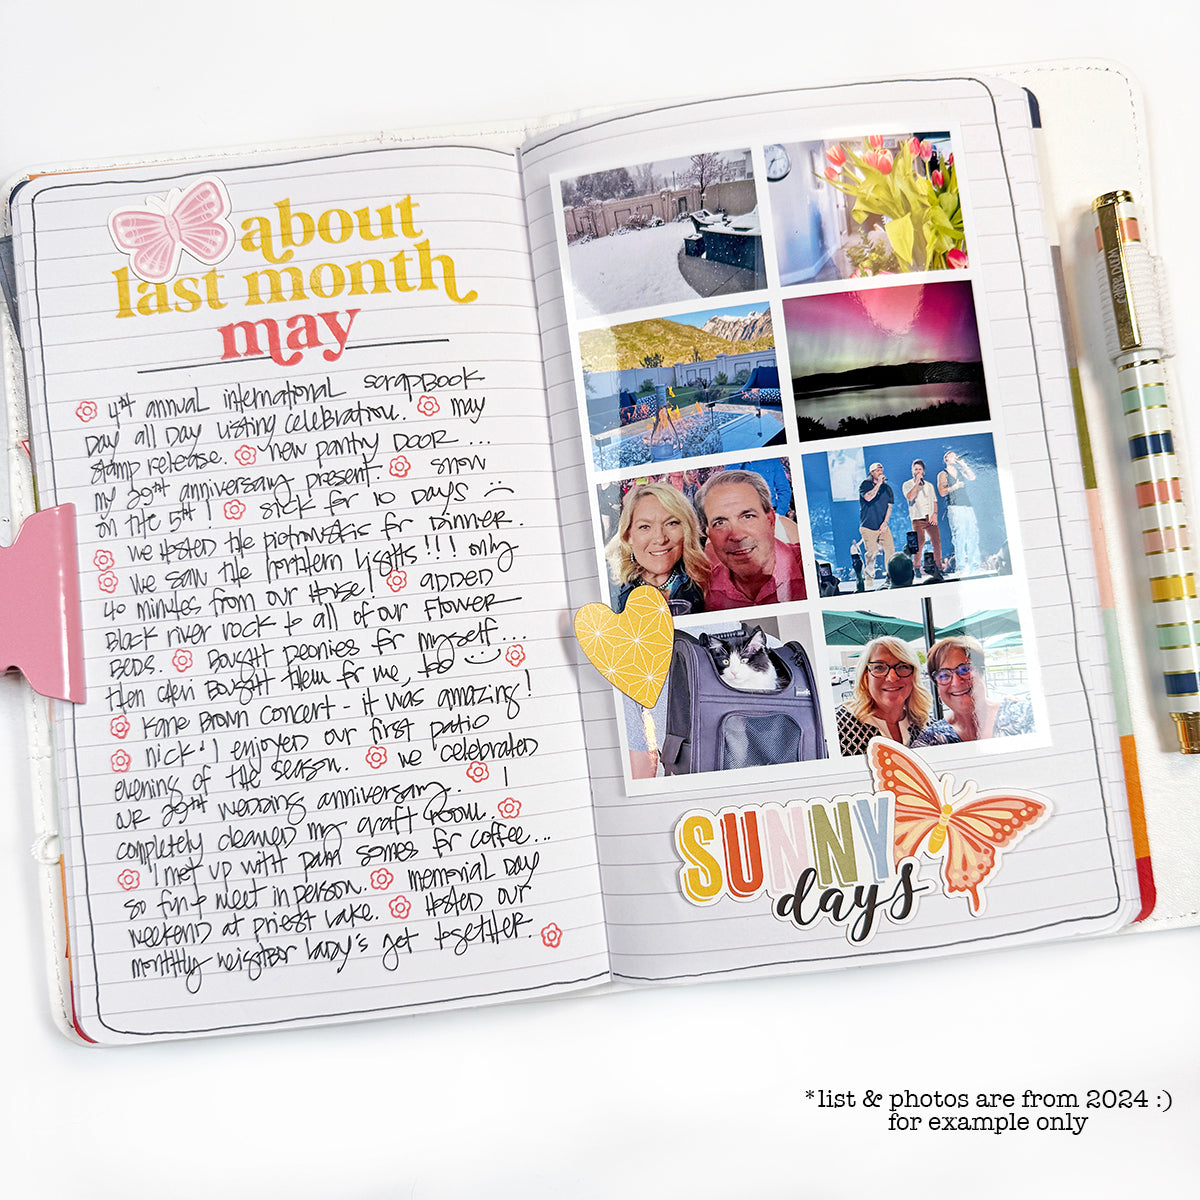 about
last month
may
4th annual international scrapbook
day all day listing celebration. may
stamp release. new pantry door ...
my 29th anniversary present. snow
on the 5th! sick for 10 days :(
we hosted the piotrowskis for dinner.
we saw the northern lights!!! only
40 minutes from our house! added
black river rock to all of our flower
beds. bought peonies for myself...
then bought them for me, too :)
kane brown concert - it was amazing!
nick & I enjoyed our first patio
evening of the season. we celebrated
our 29th wedding anniversary. I
completely cleaned my craft room.
I met up with pam somes for coffee...
so fun to meet in person. memorial day
weekend at priest lake. hosted our
monthly neighbor lady's get together.
SUNNY
days
*list & photos are from 2024 :)
for example only